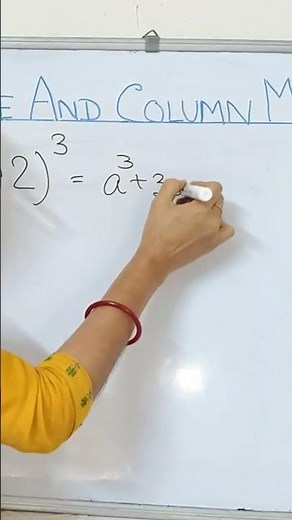 AND COLUMN
2)³ = a³ + 3